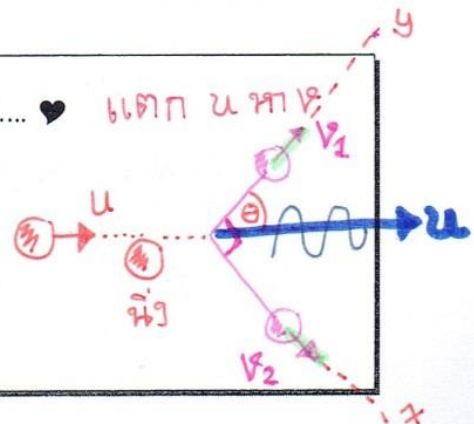 y
..... ♥ แตก u หา v
v₁
u
θ
u
นิ่ง
v₂
x